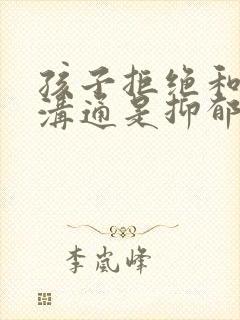 孩子拒绝和
溝通是抑郁
李岚峰